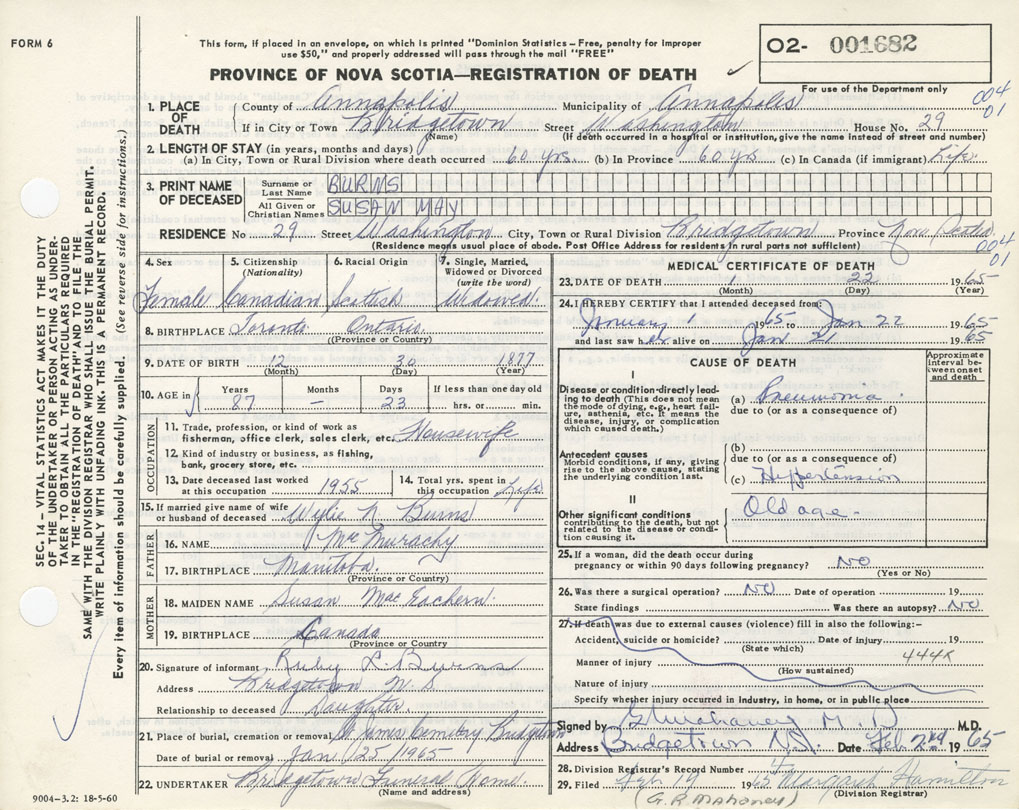 FORM 6
This form, if placed in an envelope, on which is printed "Dominion Statistics – Free, penalty for improper
use $50," and properly addressed will pass through the mail "FREE"
O2- 001682
PROVINCE OF NOVA SCOTIA—REGISTRATION OF DEATH
For use of the Department only
004
01
1. PLACE OF DEATH
County of Annapolis Municipality of Annapolis
If in City or Town Bridgetown Street Washington House No. 29
(Name) (If death occurred in a hospital or institution, give the name instead of street and number)
2. LENGTH OF STAY (in years, months and days)
(a) In City, Town or Rural Division where death occurred 60 yrs. (b) In Province 60 yrs (c) In Canada (if immigrant) Life.
3. PRINT NAME OF DECEASED
Surname or Last Name BURNS
All Given or Christian Names SUSAN MAY
RESIDENCE No 29 Street Washington City, Town or Rural Division Bridgetown Province Nova Scotia
(Residence means usual place of abode. Post Office Address for residents in rural parts not sufficient)
004
01
4. Sex
Female
5. Citizenship (Nationality)
Canadian
6. Racial Origin
Scottish
7. Single, Married, Widowed or Divorced (write the word)
Widowed.
8. BIRTHPLACE Toronto Ontario.
((Province or Country)
9. DATE OF BIRTH 12 30 1877
(Month) (Day) (Year)
10. AGE in
Years 87
Months –
Days 23
If less than one day old
hrs. or min.
OCCUPATION
11. Trade, profession, or kind of work as
fisherman, office clerk, sales clerk, etc. Housewife
12. Kind of industry or business, as fishing,
bank, grocery store, etc.
13. Date deceased last worked
at this occupation 1955
14. Total yrs. spent in
this occupation Life
15. If married give name of wife
or husband of deceased Wylie N. Burns
FATHER
16. NAME McMurachy
17. BIRTHPLACE Manitoba.
(Province or Country)
MOTHER
18. MAIDEN NAME Susan MacEachern.
19. BIRTHPLACE Canada
(Province or Country)
20. Signature of informant Ruby L. Burns
Address Bridgetown N.S.
Relationship to deceased Daughter.
21. Place of burial, cremation or removal St. James Cemetery Bridgetown
Date of burial or removal Jan 25 1965
22. UNDERTAKER Bridgetown Funeral Home.
(Name and address)
MEDICAL CERTIFICATE OF DEATH
23. DATE OF DEATH 1 22 1965
(Month) (Day) (Year)
24. I HEREBY CERTIFY that I attended deceased from:
January 1 1965 to Jan 22 1965
and last saw her alive on Jan 21 1965
CAUSE OF DEATH
Approximate interval between onset and death
I
Disease or condition directly leading to death (This does not mean the mode of dying, e.g., heart failure, asthenia, etc. It means the disease, injury, or complication which caused death.)
(a) Pneumonia
due to (or as a consequence of)
Antecedent causes
Morbid conditions, if any, giving rise to the above cause, stating the underlying condition last.
(b)
due to (or as a consequence of)
(c) Hypertension
II
Other significant conditions
contributing to the death, but not related to the disease or condition causing it.
Old age.
25. If a woman, did the death occur during
pregnancy or within 90 days following pregnancy? NO
(Yes or No)
26. Was there a surgical operation? NO Date of operation 19
State findings Was there an autopsy? NO
27. If death was due to external causes (violence) fill in also the following:-
Accident, suicide or homicide? Date of injury 19
(State which)
Manner of injury 444X
(How sustained)
Nature of injury
Specify whether injury occurred in industry, in home, or in public place
Signed by G R Mahaney M.D M.D.
Address Bridgetown N.S. Date Feb 2nd 1965
28. Division Registrar's Record Number 4
29. Filed Feb 19 1965 Margaret Hamilton
(Division Registrar)
(G.R. Mahoney)
9004-3.2: 18-5-60
SEC. 14 – VITAL STATISTICS ACT MAKES IT THE DUTY
OF THE UNDERTAKER OR PERSON ACTING AS UNDER-
TAKER TO OBTAIN ALL THE PARTICULARS REQUIRED
IN THE "REGISTRATION OF DEATH" AND TO FILE THE
SAME WITH THE DIVISION REGISTRAR WHO SHALL ISSUE THE BURIAL PERMIT.
WRITE PLAINLY WITH UNFADING INK. THIS IS A PERMANENT RECORD.
Every item of information should be carefully supplied. (See reverse side for instructions.)